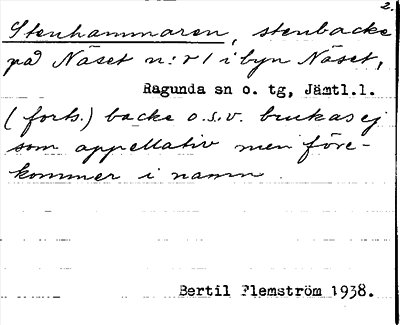 2.
Stenhammaren, stenbacke
på Näset n:r 1 i byn Näset,
Ragunda sn o. tg, Jämtl.l.
(forts.) backe o.s.v. brukas ej
som appellativ men före-
kommer i namn.
Bertil Flemström 1938.